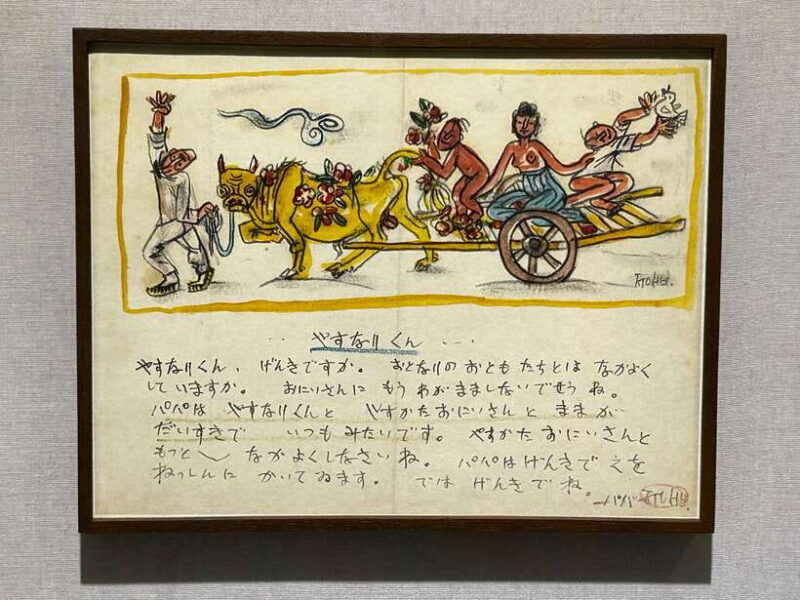 RYOHEI.
やすなりくん
やすなりくん、げんきですか。おとなりのおともだちとは なかよく
していますか。 おにいさんに もう わがまましないでせうね。
パパは やすなりくんと やすかたおにいさんと ままが
だいすきで いつもみたいです。 やすかたおにいさんと
もっと なかよくしなさいね。 パパはげんきで えを
ねっしんに かいてゐます。 では げんきでね。
パパ RYOHEI